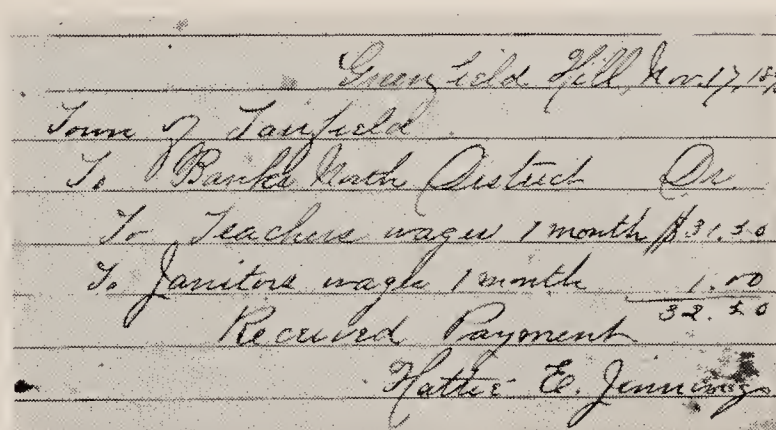 Greenfield Hill, Nov. 17, 18
Town of Fairfield
To Banks North District Dr.
To Teachers wages 1 month $31.50
To Janitors wages 1 month 1.00
32.50
Received Payment
Hattie E. Jennings